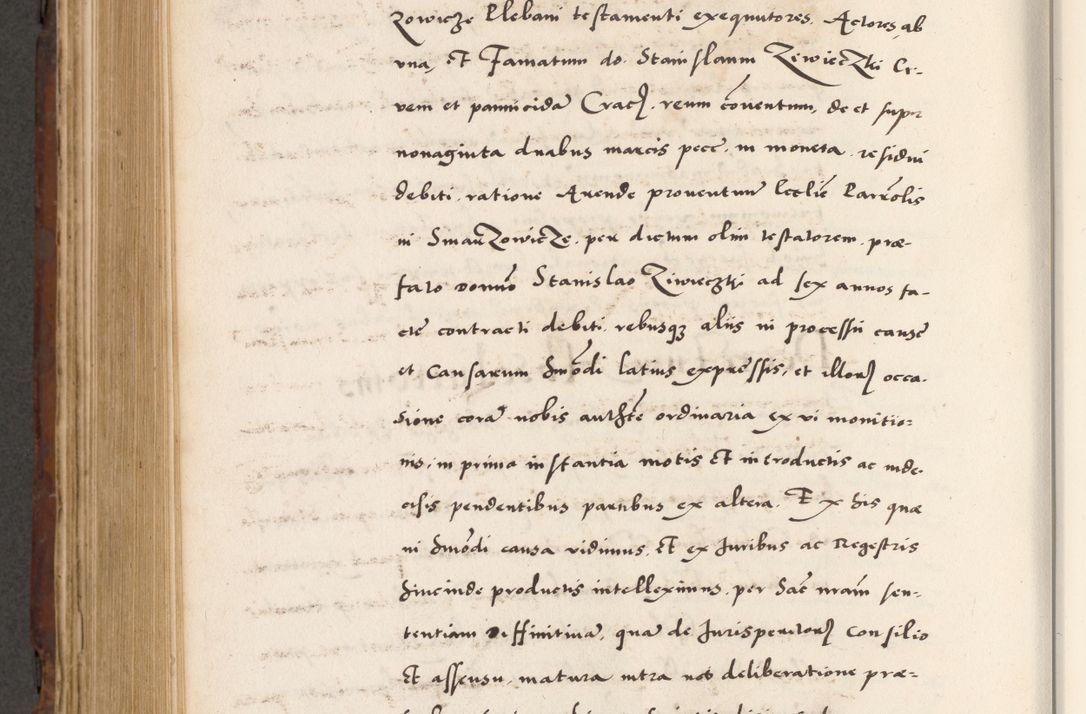 zowicze Plebani testamenti exequutores, Actores, ab
vna, Et Famatum do. Stanislaum Ziwieczki Ci-
vem et pannicida Cracꝫ. reum conuentum, de et supr
nonaginta duabus marcis pece. in moneta. residui
debiti. ratione Arende prouentum Ecclie Parrolis
in Smarzowicze. per dictum olim testatorem. præ-
fato domino Stanislao Ziwieczki ad sex annos fa-
cte contracti debiti. rebusqꝫ aliis in processu cause
et Causarum hmodi latius expressis, et illorꝫ occa-
sione cora nobis authte ordinaria ex vi monitio-
nis, in prima instantia motis Et introductis ac inde-
cisis pendentibus partibus ex altera. Ex his quæ
in hmodi causa vidimus, Et ex Juribus ac Regestris
hincinde productis intelleximus. per hac nram sen-
tentiam diffinitiua, qua de Jurisperitorꝫ Consilio
Et assensu, matura intra nos deliberatione præ-